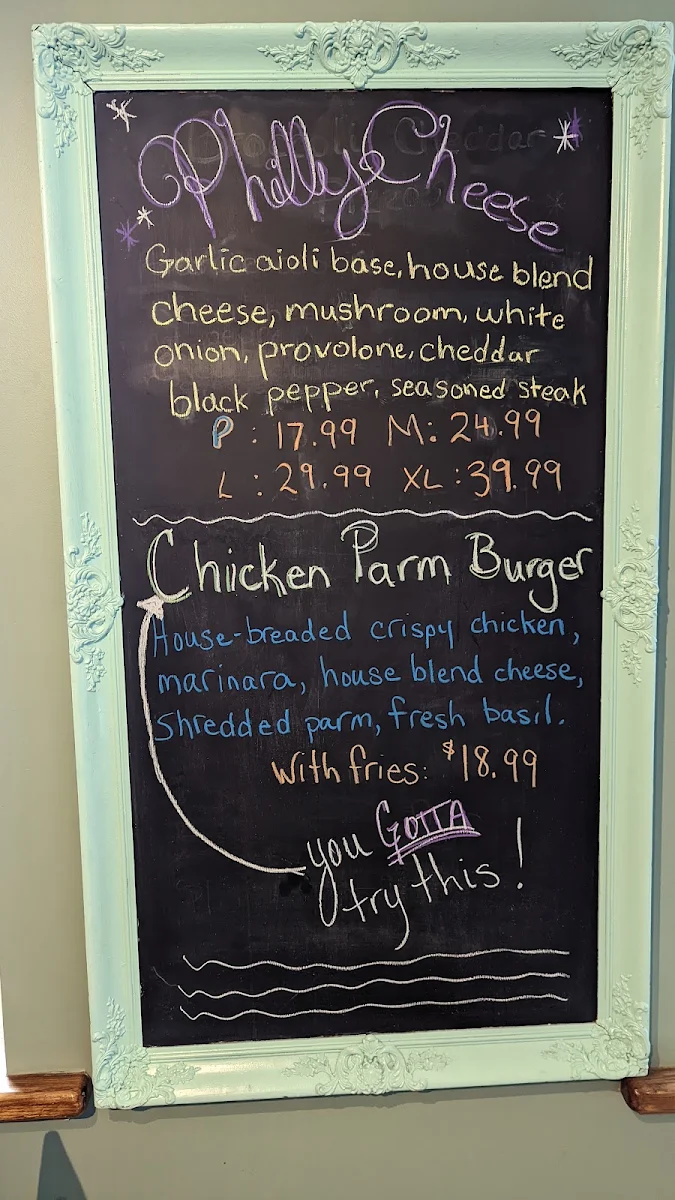 Philly Cheese
Garlic aioli base, house blend
cheese, mushroom, white
onion, provolone, cheddar
black pepper, seasoned steak
P : 17.99 M: 24.99
L : 29.99 XL : 39.99
Chicken Parm Burger
House-breaded crispy chicken,
marinara, house blend cheese,
Shredded parm, fresh basil.
With fries: $18.99
you GOTTA
try this!